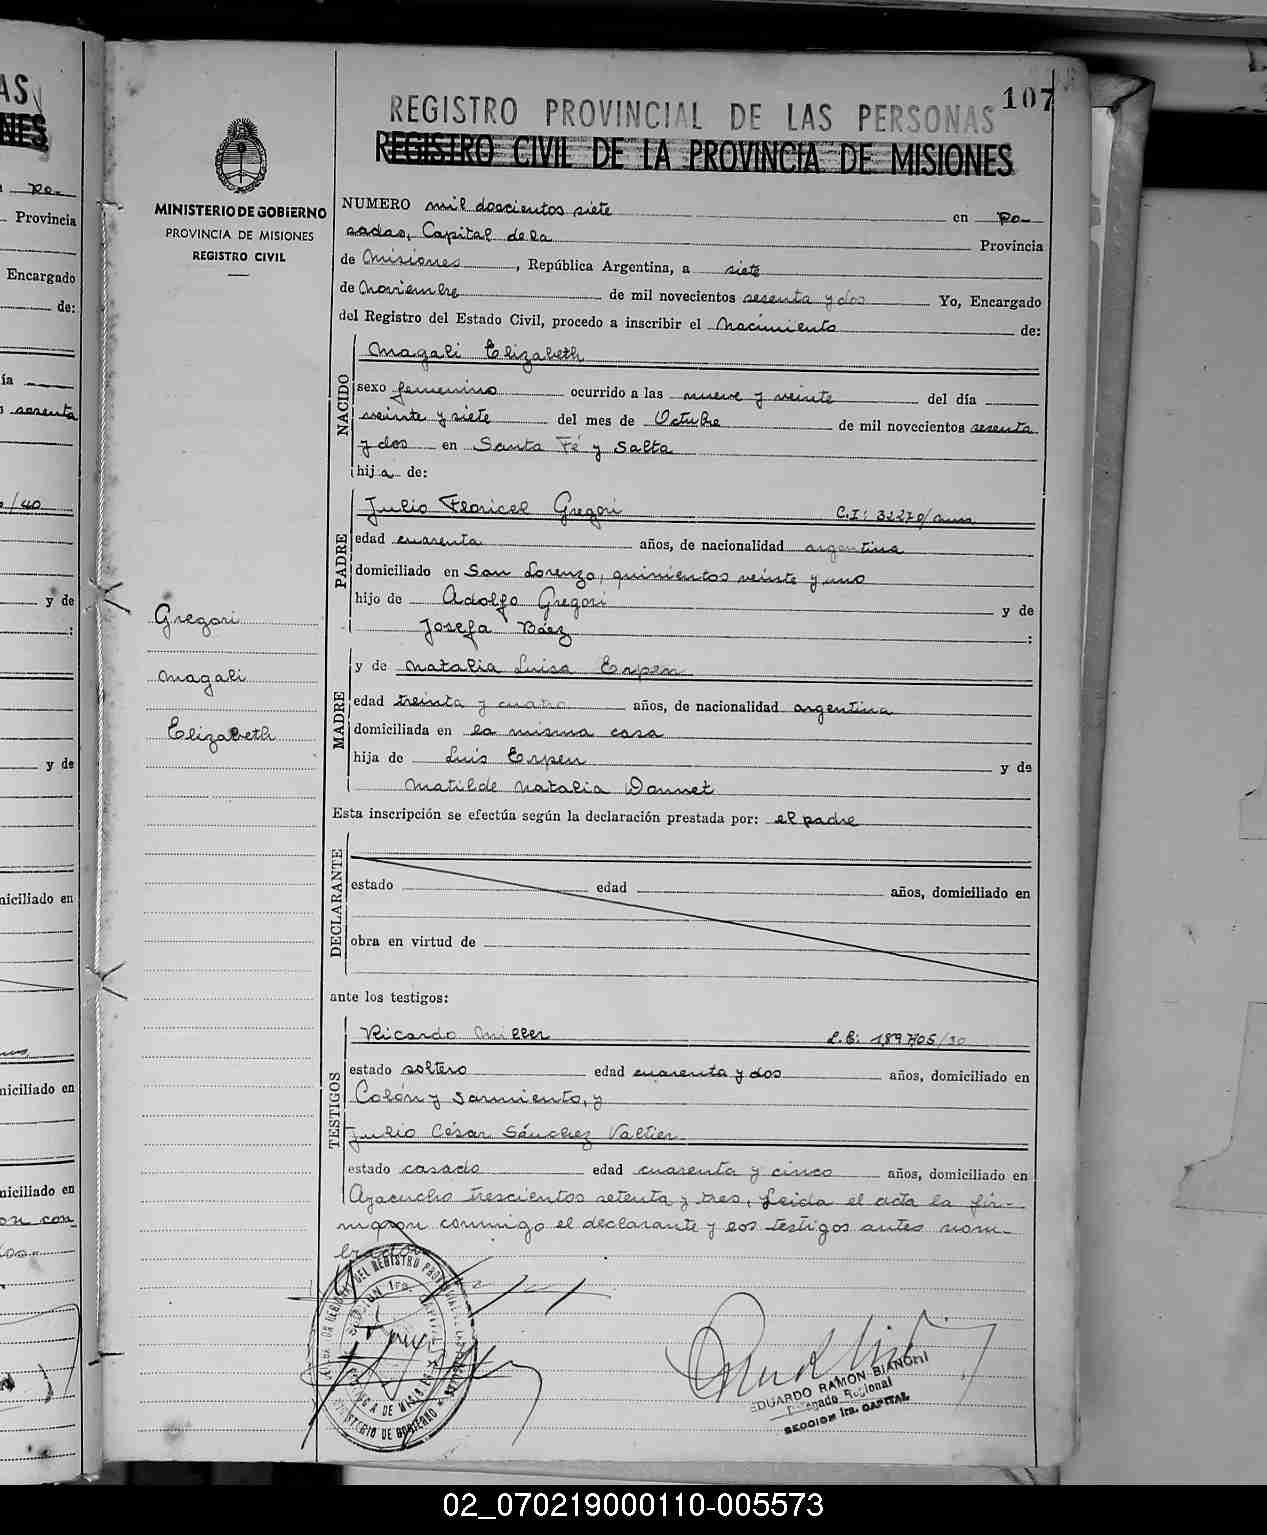 107
REGISTRO PROVINCIAL DE LAS PERSONAS
REGISTRO CIVIL DE LA PROVINCIA DE MISIONES
MINISTERIO DE GOBIERNO
PROVINCIA DE MISIONES
REGISTRO CIVIL
NUMERO mil doscientos siete en Po-
sadas, Capital de la Provincia
de Misiones, República Argentina, a siete
de Noviembre de mil novecientos sesenta y dos Yo, Encargado
del Registro del Estado Civil, procedo a inscribir el Nacimiento de:
NACIDO
Magali Elizabeth
sexo femenino ocurrido a las nueve y veinte del día
veinte y siete del mes de Octubre de mil novecientos sesenta
y dos en Santa Fé y Salta
hija de:
PADRE
Julio Floricel Gregori C.I: 32270/
edad cuarenta años, de nacionalidad argentina
domiciliado en San Lorenzo, quinientos veinte y uno
hijo de Adolfo Gregori y de
Josefa Báez :
Gregori
Magali
Elizabeth
MADRE
y de Natalia Luisa Erpen
edad treinta y cuatro años, de nacionalidad argentina
domiciliada en la misma casa
hija de Luis Erpen y de
Matilde Natalia Donnet
Esta inscripción se efectúa según la declaración prestada por: el padre
DECLARANTE
estado edad años, domiciliado en
obra en virtud de
ante los testigos:
TESTIGOS
Ricardo Miller L.E: 189705/30
estado soltero edad cuarenta y dos años, domiciliado en
Colón y Sarmiento, y
Julio César Sánchez Valtier
estado casado edad cuarenta y cinco años, domiciliado en
Ayacucho trescientos setenta y tres, Leida el acta la fir-
maron conmigo el declarante y los testigos antes nom-
brados
EDUARDO RAMON BIANCHI
Delegado Regional
SECCION 1ra. CAPITAL
02_070219000110-005573